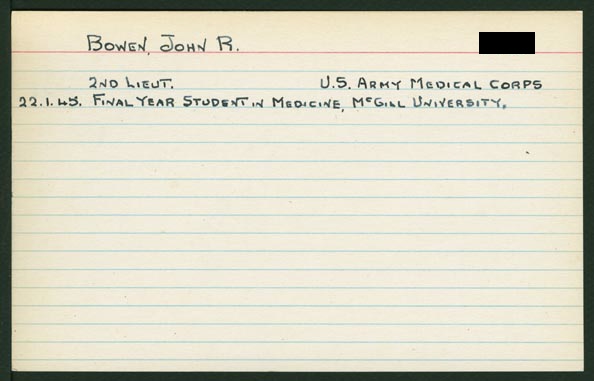 Bowen, John R.
2nd Lieut. U.S. Army Medical Corps
22.1.45. Final Year Student in Medicine, McGill University.